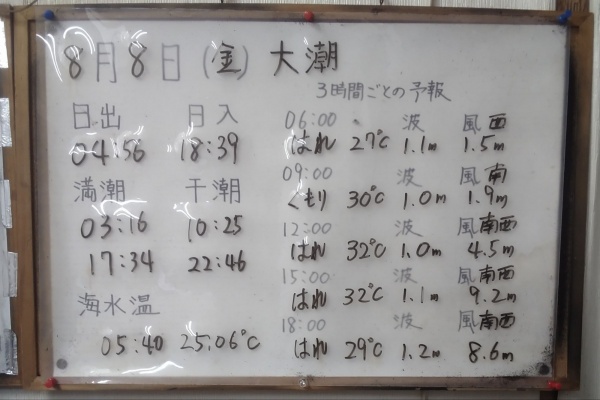 8月8日(金) 大潮
3時間ごとの予報
日出 日入
04:56 18:39
満潮 干潮
03:16 10:25
17:34 22:46
海水温
05:40 25:06℃
06:00 波 風西
はれ 27℃ 1.1m 1.5m
09:00 波 風南
くもり 30℃ 1.0m 1.9m
12:00 波 風南西
はれ 32℃ 1.0m 4.5m
15:00 波 風南西
はれ 32℃ 1.1m 9.2m
18:00 波 風南西
はれ 29℃ 1.2m 8.6m